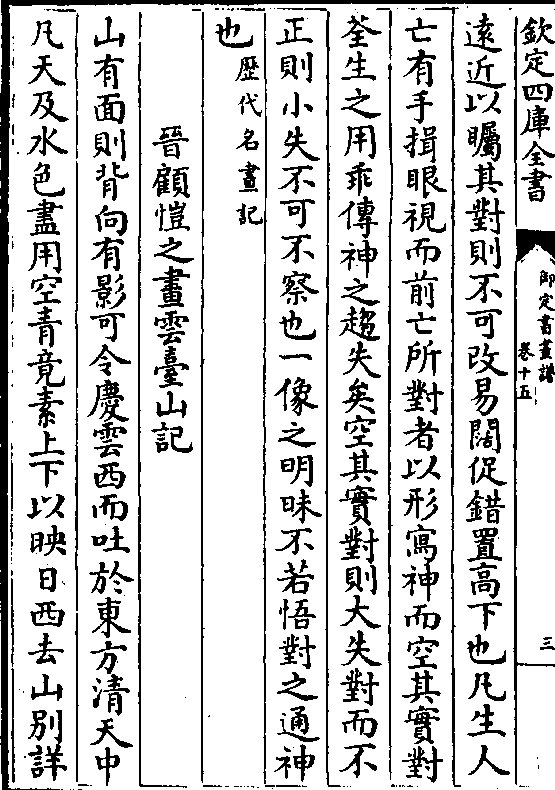 欽定四庫全書
御定書畫譜
卷十五
三
遠近以矚其對則不可改易闊促錯置高下也凡生人
亡有手揖眼視而前亡所對者以形寫神而空其實對
荃生之用乖傳神之趨失矣空其實對則大失對而不
正則小失不可不察也一像之明昧不若悟對之通神
也歴代名畫記
晉顧愷之畫雲臺山記
山有面則背向有影可令慶雲西而吐於東方清天中
凡天及水色盡用空青竟素上下以映日西去山別詳